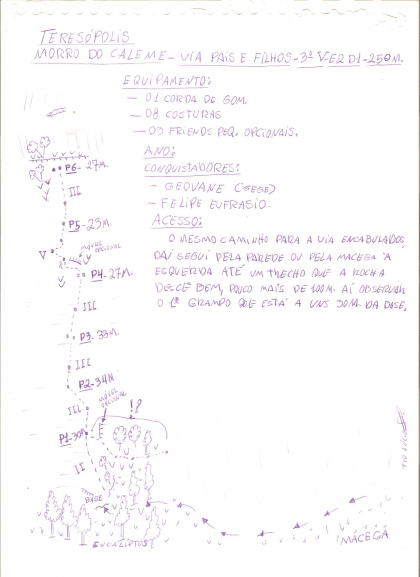 TERESÓPOLIS
MORRO DO CALEME - VIA PAIS E FILHOS - 3º V - E2 D1 - 250M.
EQUIPAMENTO:
- 01 CORDA DE 60M.
- 08 COSTURAS
- 03 FRIENDS PEQ. OPCIONAIS.
ANO:
CONQUISTADORES:
- GEOVANE (GEGE)
- FELIPE EUFRASIO.
ACESSO:
O MESMO CAMINHO PARA A VIA ENCABULADOS,
DAÍ SEGUI PELA PAREDE OU PELA MACEGA À
ESQUERDA ATÉ UM TRECHO QUE A ROCHA
DESCE BEM, POUCO MAIS DE 100M. AÍ OBSERVAR
O 1º GRAMPO QUE ESTÁ A UNS 30M. DA BASE.
P6 - 27M.
III
P5 - 23M.
MÓVEL
OPCIONAL
V
P4 - 27M.
III
P3 - 33M.
III
P2 - 34M
MÓVEL
OPCIONAL
III
!?
P1 - 30M
II
BASE
EUCALIPTOS
MACEGA